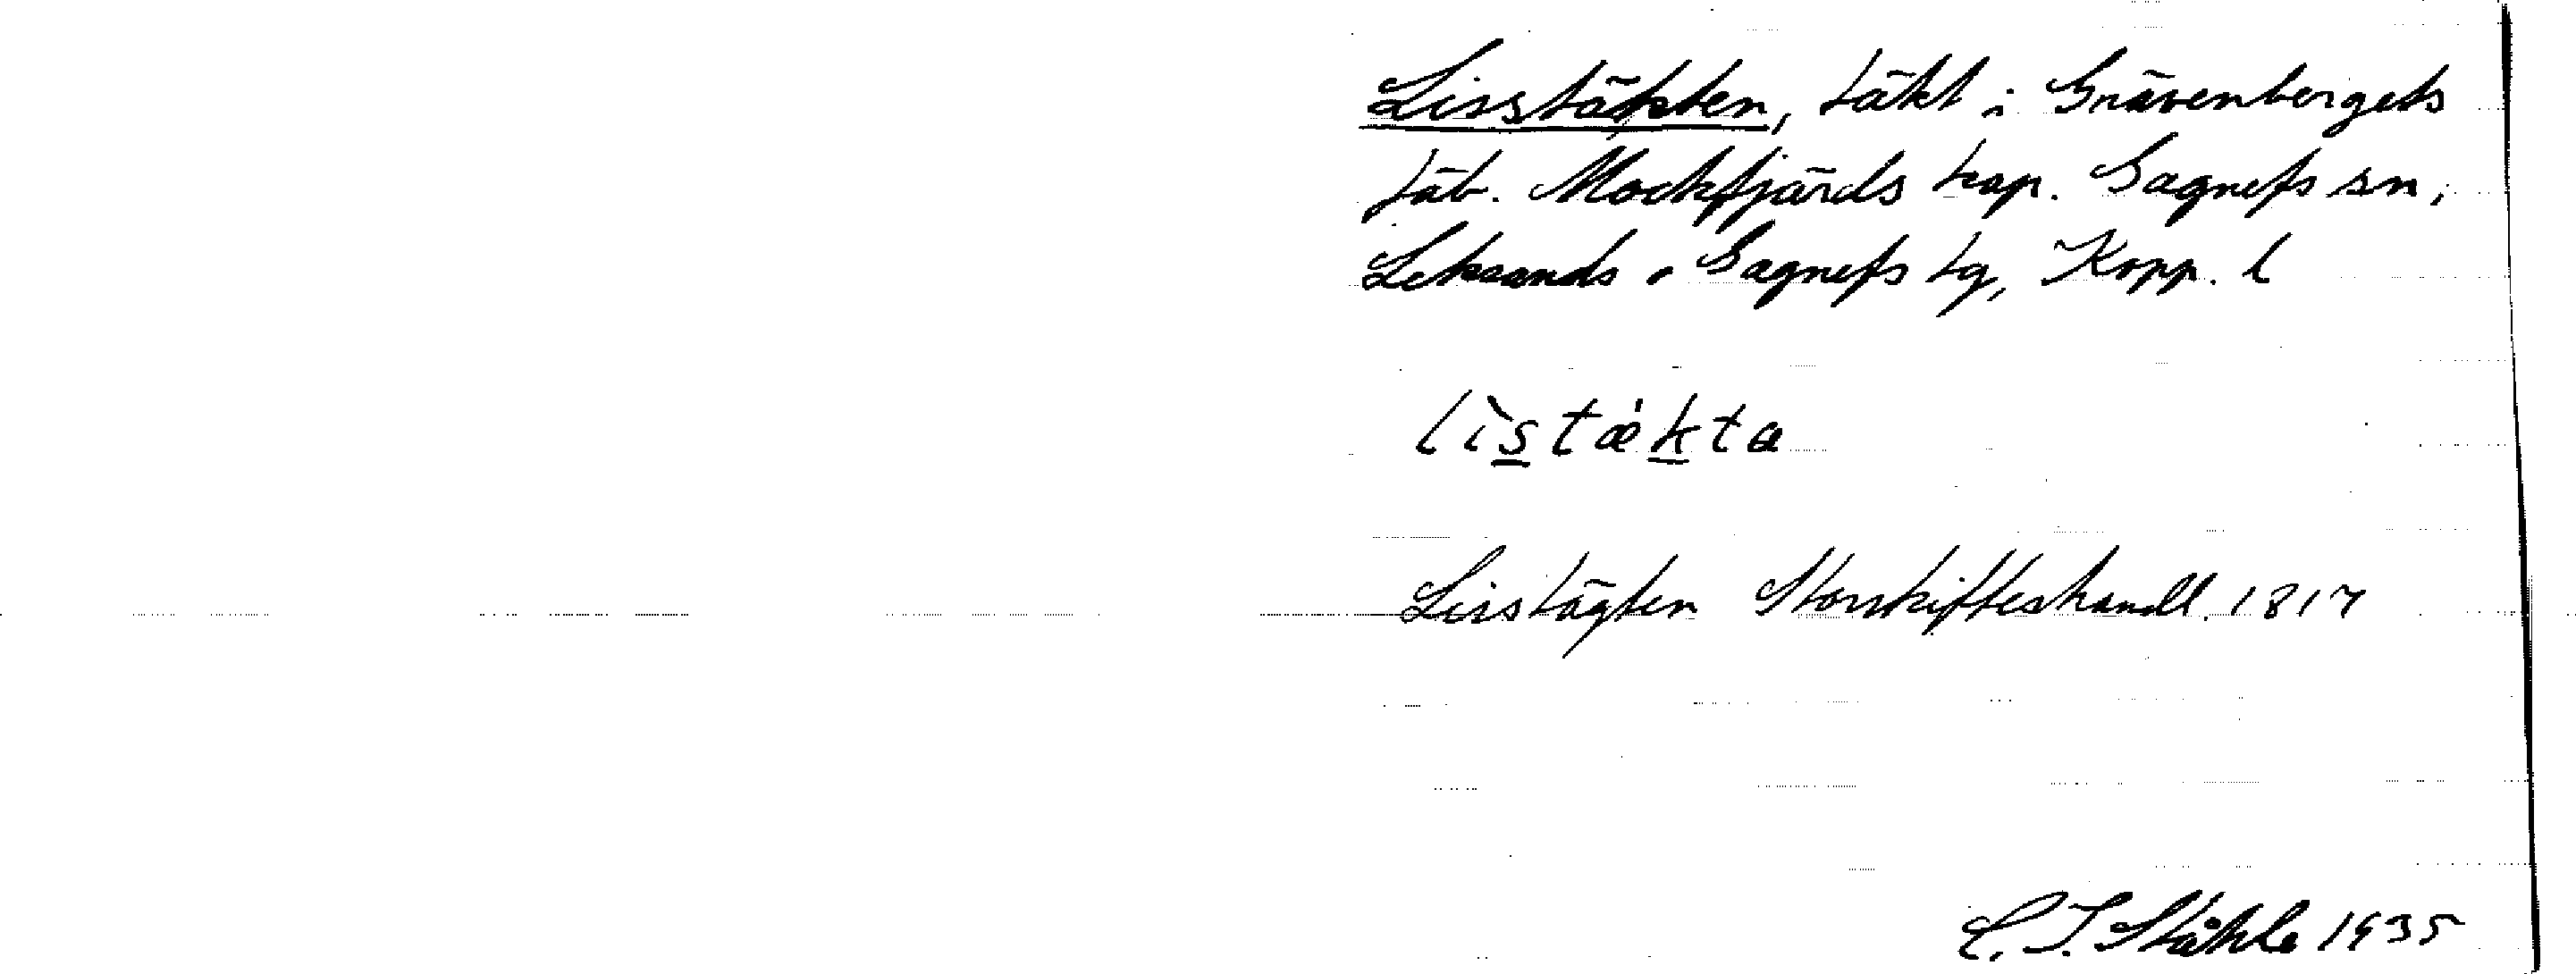 Lisstäkten, täkt i Grävenbergets
fäb. Mockfjärds kap. Gagnefs sn,
Leksands o Gagnefs tg, Kopp. l
lìstǽkta
Lisstägten Storskifteshandl. 1817
C. I. Ståhle 1935